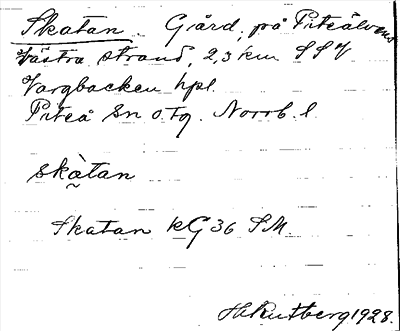 Skatan. Gård, på Piteälvens
västra strand, 2,3 km SSV
Vargbacken hpl.
Piteå sn o. tg. Norrb. l.
skàtan
Skatan RG 36 S.M.
H. Rutberg 1928.